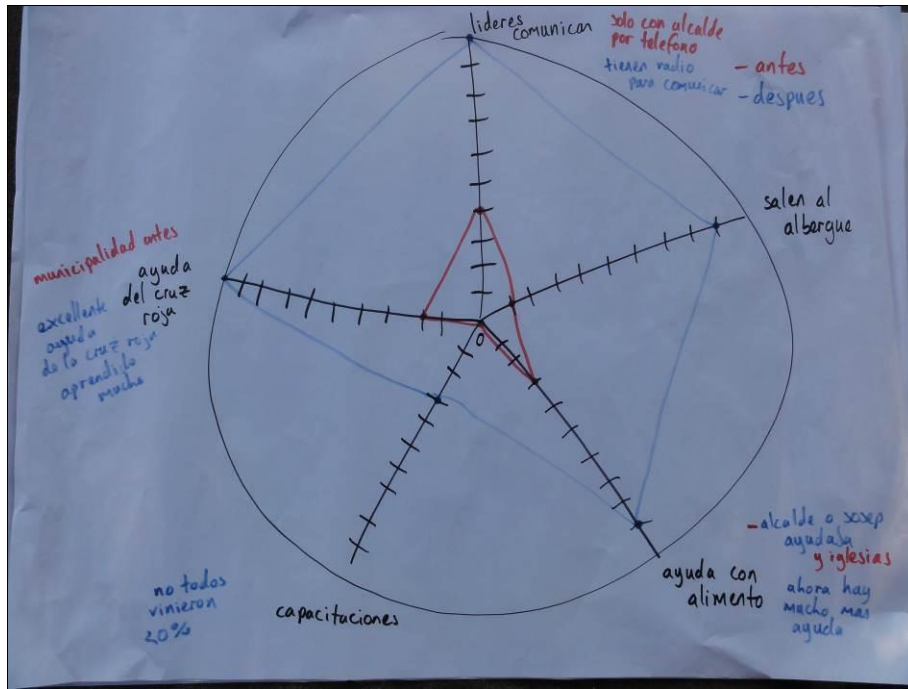 lideres
comunican
solo con alcalde
por telefono
tienen radio
para comunicar
- antes
- despues
salen al
albergue
municipalidad antes
ayuda
del cruz
roja
excellente
ayuda
de la cruz roja
aprendilo
mucho
0
- alcalde o sosep
ayudaba
y iglesias
ahora hay
mucho mas
ayuda
ayuda con
alimento
capacitaciones
no todos
vinieron
20%